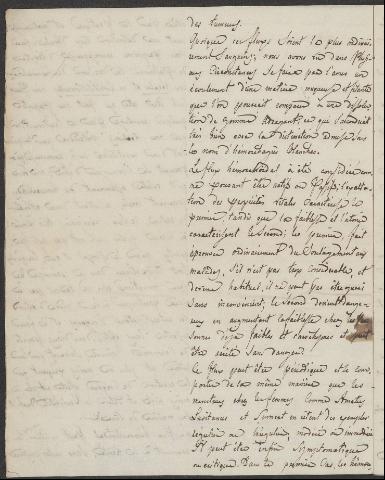 des tumeurs.
Quoique ces fluxs soient le plus ordinai-
rement sanguins; nous avons vu dans plusi-
eurs circonstances se faire par l'anus un
écoulement d'une matiere muqueuse et filante
que l'on pourrait comparer à une dissolu-
tion de gomme adragant; ce qui s'accorde
très bien avec la distinction admise sous
le nom d'hémorroïdes blanches.
Le flux hémorroïdal a été considéré com-
me pouvant être actif ou passif: l'exalta-
tion des propriétés vitales caractérise le
premier, tandis que la faiblesse et l'atonie
caractérisent le second; le premier, fait
éprouver ordinairement du soulagement aux
malades, s'il n'est pas trop considérable, et
devenu habituel, il ne peut pas être guéri
sans inconvénient; le second devient dange-
reux en augmentant la faiblesse chez les per-
sonnes déjà faibles et et peut
être arrêté sans danger.
Le flux peut être périodique et se com-
porter de la même manière que les
menstrues chez les femmes, comme Amatus
Lusitanus et en citent des exemples
régulier ou irrégulier, modéré ou immodéré
Il peut être enfin symptomatique
ou critique. Dans le premier cas, les hémor-